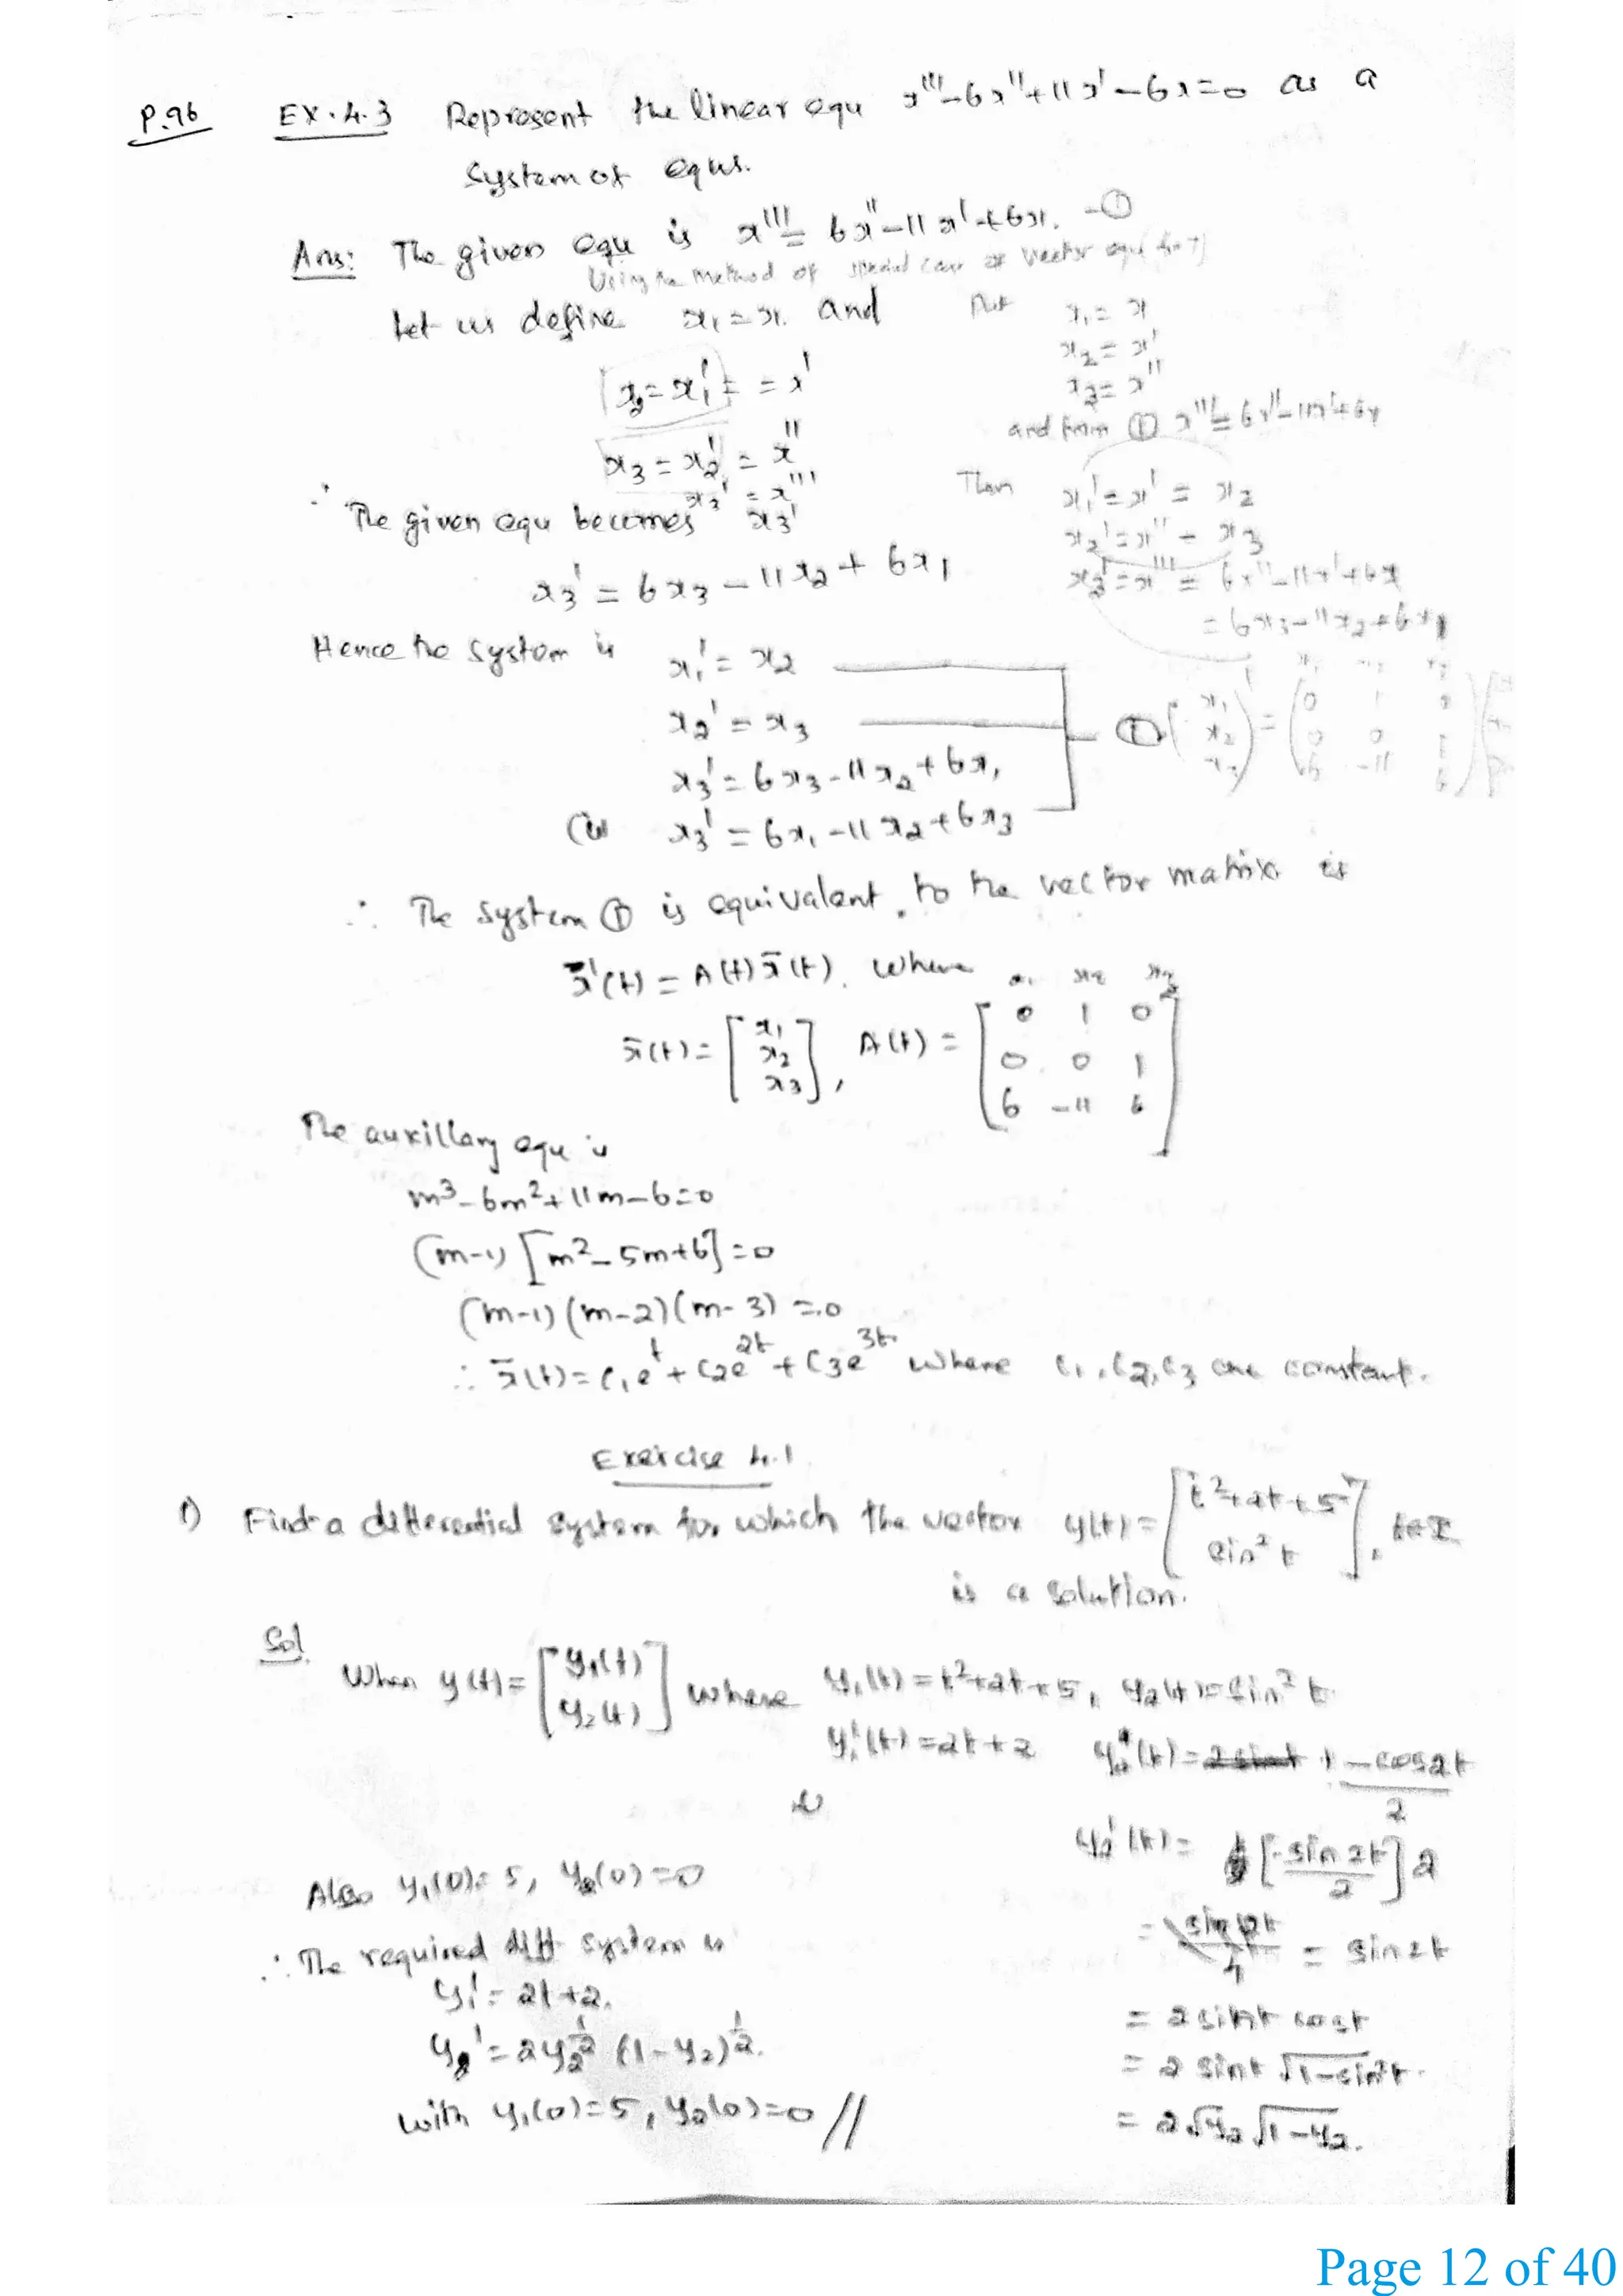 P.96 EX.4.3 Represent the linear equ x'''-6x''+11x'-6x=0 as a
system of equs.
Ans: The given equ is x''' = 6x''-11x'+6x. -①
Using the method of special case of vector equ
Let us define x₁ = x. and
x₂ = x₁' = = x'
x₃ = x₂' = x''
x₃' = x'''
∴ The given equ becomes x₃'
x₃' = 6x₃ - 11x₂ + 6x₁
Put x₁ = x
x₂ = x'
x₃ = x''
and from ① x''' = 6x''-11x'+6x
Then x₁' = x' = x₂
x₂' = x'' = x₃
x₃' = x''' = 6x''-11x'+6x
= 6x₃-11x₂+6x₁
Hence the system is x₁' = x₂
x₂' = x₃
x₃' = 6x₃-11x₂+6x₁
(ie) x₃' = 6x₁-11x₂+6x₃
①
∴ The system ① is equivalent to the vector matrix is
x̄'(t) = A(t) x̄(t). Where
x̄(t) = [x₁ x₂ x₃], A(t) = [0 1 0
0 0 1
6 -11 6]
The auxillary equ is
m³-6m²+11m-6=0
(m-1) [m²-5m+6]=0
(m-1)(m-2)(m-3)=0
∴ x̄(t) = c₁e^t + c₂e^2t + c₃e^3t where c₁,c₂,c₃ are constant.
Exercise 4.1
1) Find a differential system for which the vector y(t) = [t²+2t+5
sin² t], t∈I
is a solution.
Sol. When y(t) = [y₁(t)
y₂(t)] where y₁(t) = t²+2t+5, y₂(t) = sin² t
y₁'(t) = 2t+2 y₂(t) = 1-cos2t / 2
y₂'(t) = [-sin 2t / 2] 2
= sin2t
= 2 sint cost
= 2 sint √1-sin²t.
= 2√y₂ √1-y₂.
Also y₁(0)=5, y₂(0)=0
∴ The required diff system is
y₁' = 2t+2.
y₂' = 2y₂^½ (1-y₂)^½.
with y₁(0)=5, y₂(0)=0 //
Page 12 of 40